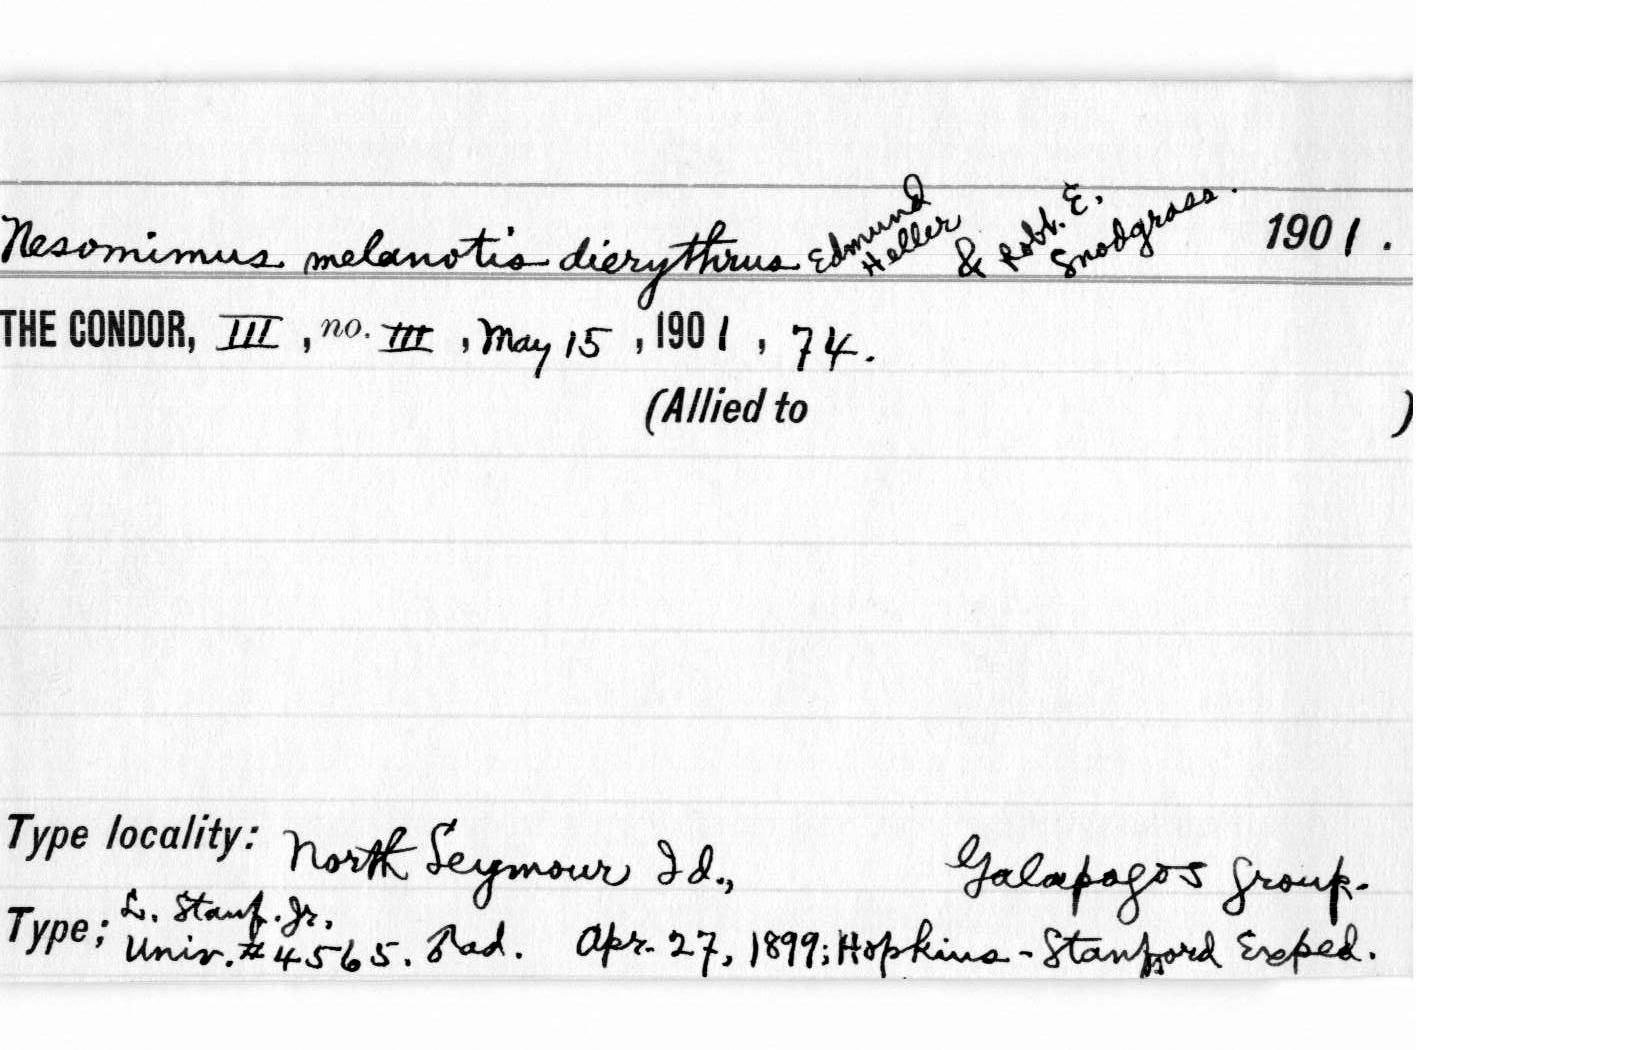 Nesomimus melanotis dierythrus Edmund Heller & Robt. E. Snodgrass. 1901.
THE CONDOR, III, no. III, May 15, 1901, 74.
(Allied to )
Type locality: North Seymour Id., Galapagos Group.
Type; L. Stanf. Jr. Univ. #4565. ad. Apr. 27, 1899; Hopkins-Stanford Exped.